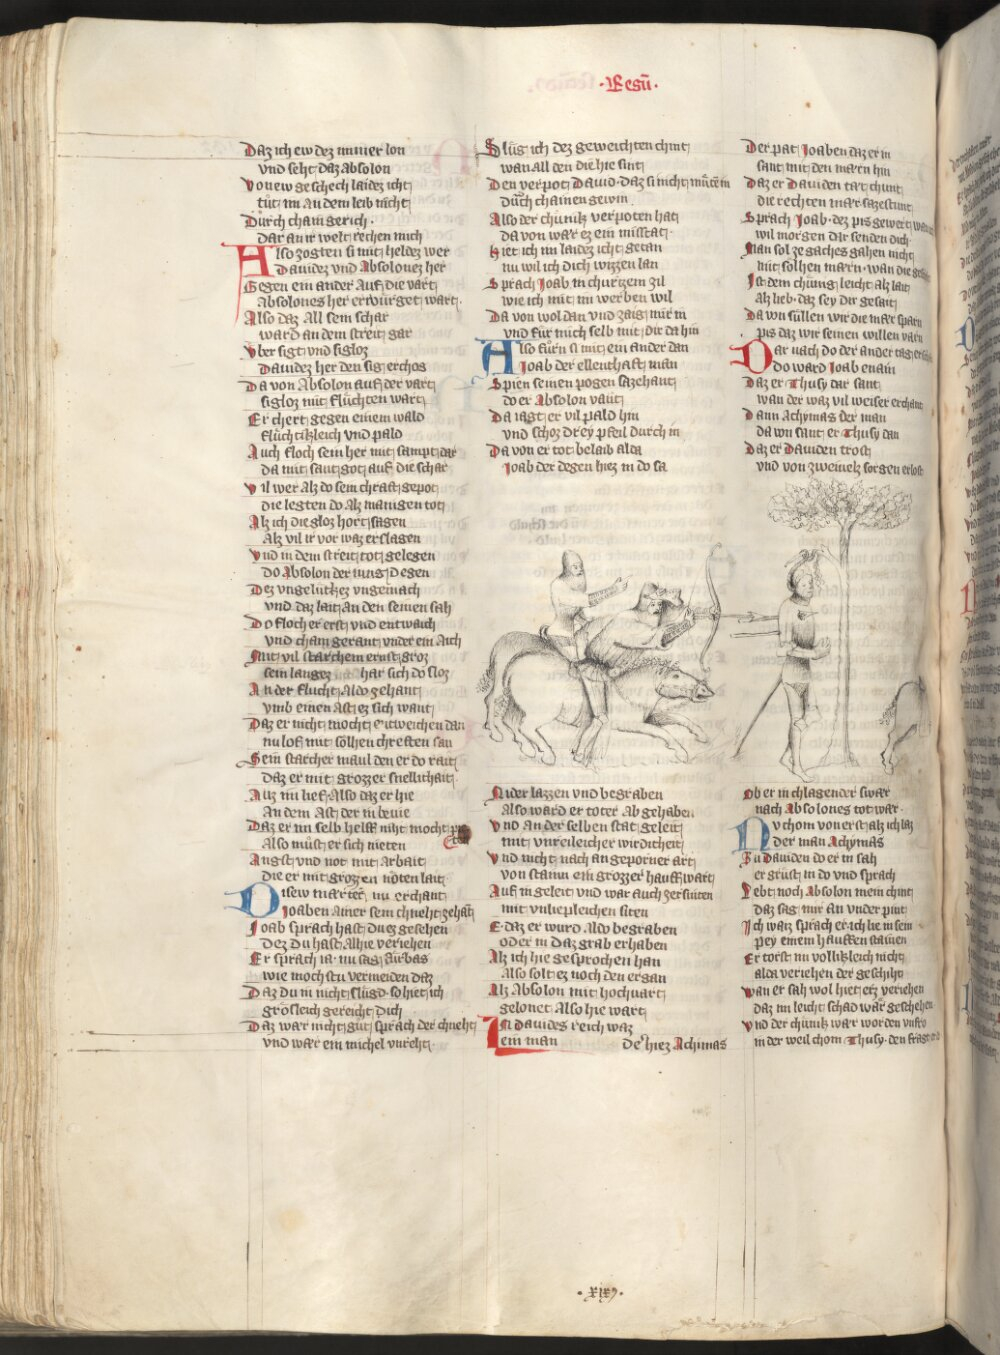 · Regũ ·
Daz ich ew dez immer lon
vnd seht daz Absolon
Von ew geschech laidez icht
tut im an dem leib nicht
Durch chain gerich ·
dar an ir welt rechen mich
Also zogten si mit heldez wer
Dauidez vnd Absolonez her
Gegen ein ander Auf die vart
Absolones her erwurget wart ·
Also daz All sein schar
ward an dem streit gar
Vber sigt vnd sigloz
Dauidez her den sig erchos
Da von Absolon auf der vart
sigloz mit fluchten wart
Er chert gegen einem wald
fluchtichleich vnd pald
Auch floch sein her mit sampt dar
da mit sant got auf die schar
Vil wer Alz do sein chraft gepot
die legten do Alz manigen tot
Alz ich die gloz hort sagen
Alz vil ir vor waz erslagen
Vnd in dem streit tot gelegen
do Absolon der iung degen
Dez vngeluchez vngemach
vnd daz lait an den seinen sach
Do floch er erst vnd entwaich
vnd cham gerant vnder ein Aich
Mit vil starchem ernst groz
sein langez har sich do sloz
An der flucht Aldo zehant
vmb einen Ast ez sich want
Daz er nicht mocht entweichen dan
nu lof mit solhen chreften san
Sein starcher maul den er do rait
daz er mit grozzer snellichait
Auz im lief Also daz er hie
An dem Ast der in beuie
Daz er im selb helff niht mocht
Also must er sich nieten
Angst vnd not mit Arbait
die er mit grozzen noten lait
Disew marter nu erchant
Joaben ainer sein chneht zehant
Joab sprach hast du ez gesehen
dez du hast Alhie veriehen
Er sprach ia nu sag furbas
wie mochstu vermeiden daz
Daz du in nicht slugd · so hiet ich
grosleich gereicht dich
Daz war nicht gut sprach der chneht
vnd war ein michel vnreht
Slug ich dez geweichten chint
wan all den die hie sint
Den verpot Dauid · daz si nicht
durch chainen gewin ·
Also der chunik verpoten hat
da von war ez ein missetat
Hiet ich im laidez icht getan
nu wil ich dich wizzen lan
Sprach Joab in churtzem zil
wie ich mit im werben wil
Da von wol dan vnd zaig mir in
vnd für mich selb mit dir da hin
Also furn si mit ein ander dan
Joab der ellenthaft man
Spien seinen pogen sazehant
do er Absolon vant
Da iagt er vil pald hin
vnd schoz drey pfeil durch in
Da von er tot belaib alda
Joab der degen hiez in do sa
Nider lazzen vnd begraben
Also ward er toter Ab gehaben
Vnd An der selben stat geleit
mit vnreileicher wirdicheit
Vnd nicht nach angeporner art
von stainn ein grozzer hauff wart
Auf in geleit vnd war auch zersniten
mit vnlieplichen siten
E · daz er wurd Aldo begraben
oder in daz grab erhaben
Alz ich hie gesprochen han
Also solt ez noch den ergan
Alz Absolon mit hochuart
gelonet Also hie wart
In Dauides reich waz
ein man der hiez Achimas
Der pat Joaben daz er in
sant mit den mærn hin
Daz er Dauiden tæt chunt
die rechten mær sazestunt
Sprach Joab · dez pis gewert
wil morgen dar senden dich
Man sol ze gaches gahen nicht
mit solhen mærn · wan die
Ist dem chung leicht alz lait
alz lieb · daz sey dir gesait
Da von sullen wir die mær sparn
pis daz wir seinen willen varn
Dar nach do der ander tag
do ward Joab enain
Daz er Thusy dar sant
wan der waz vil weiser erchant
Dann Achymas der man
da von sant er Thusy dan
Daz er Dauiden trost
vnd von zweinelz sorgen erlost
Ob er in chlagender swær
nach Absolones tot wær ·
Nv chom von erst alz ich laz
der man Achymas
Zu Dauiden do er in sah
er grust in do vnd sprach
Lebt noch Absolon mein chint
daz sag mir an vnder pint
Ich waiz sprach er · ich lie in sein
pey einem hauffen stainen
Er torst im vollikleich nicht
alda veriehen der geschiht
Wan er sah wol hiet erz veriehen
daz im leicht schad wær geschehen
Vnd der chunik wær worden vnfro
in der weil chom Thusy · den
· xix9 ·